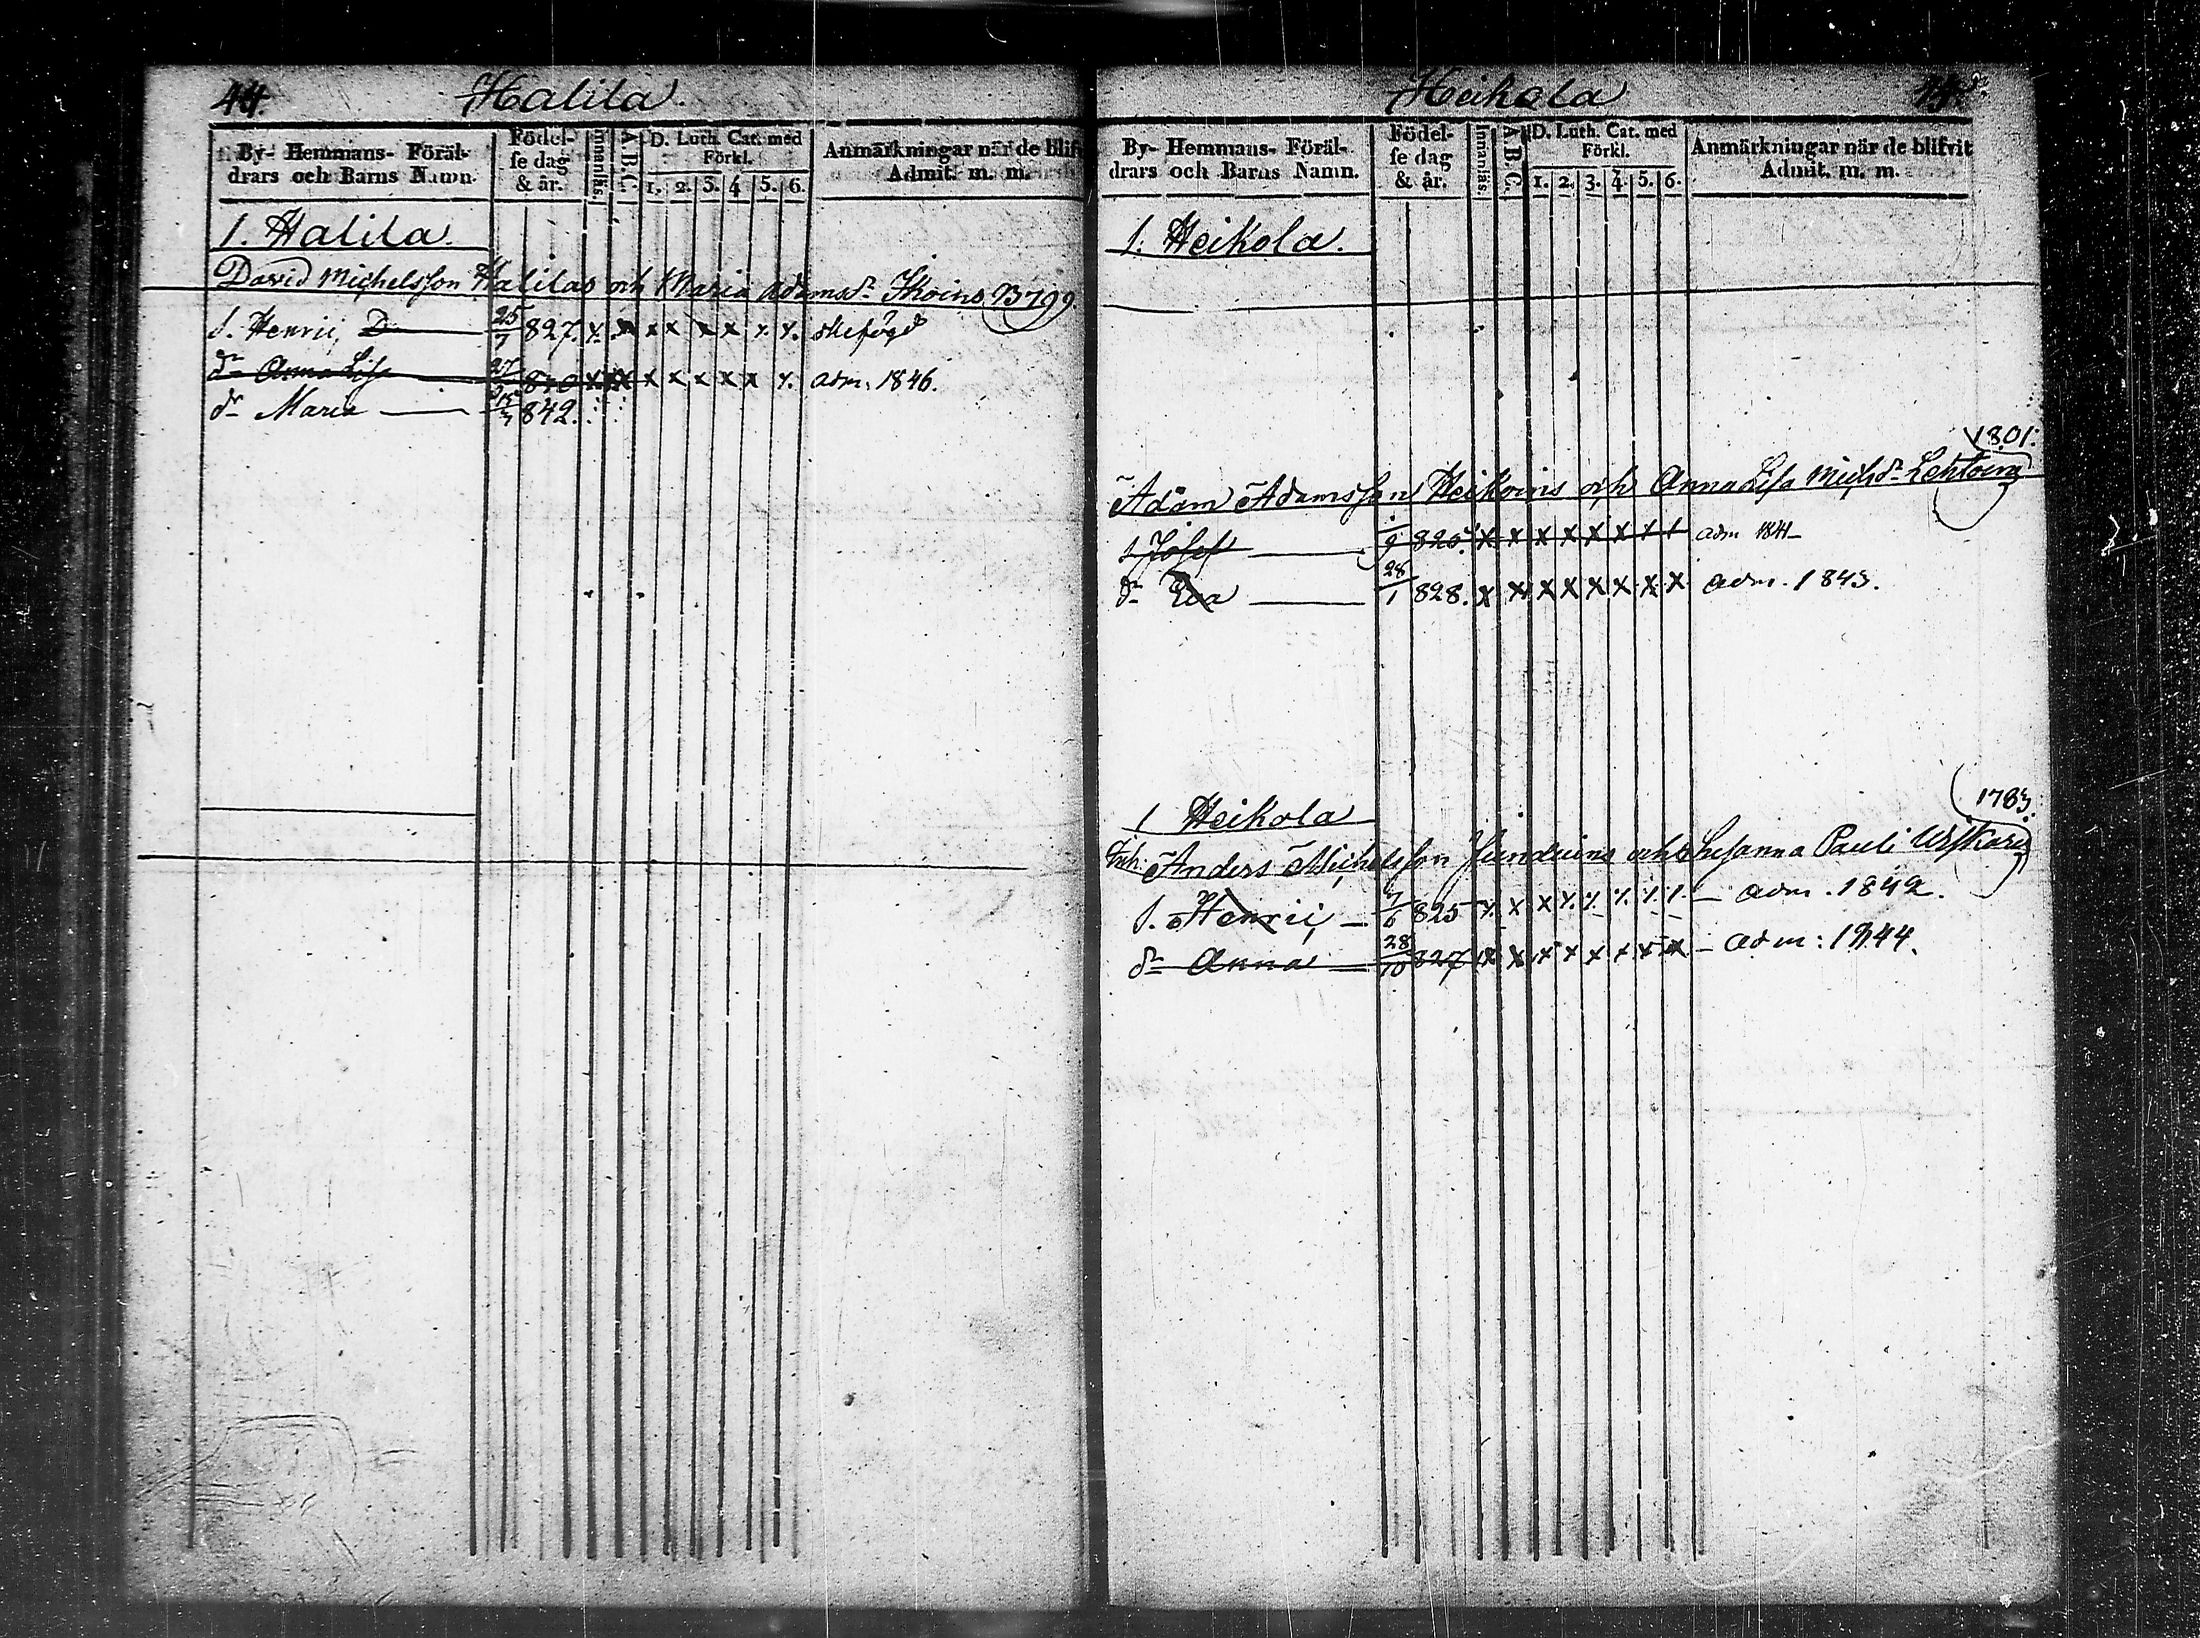 44.
Halila.
By- Hemmans- Föräl-
drars och Barns Namn.
Födel-
se dag
& år.
Innanläs.
A B C.
D. Luth. Cat. med
Förkl.
1. 2. 3. 4 5. 6.
Anmärkningar när de blifv
Admit. m. m.
1. Halila.
David Michelsson Halilas och Maria Adamsdr Ikoins 1799
S. Henric, D 25/7 827. x. x x x x x x x. skefögd
dr Anna Lisa 27 x x x x x x x x. adm. 1846.
dr Maria 842.
Heikola
By- Hemmans- Föräl-
drars och Barns Namn.
Födel-
se dag
& år.
Innanläs.
A B C.
D. Luth. Cat. med
Förkl.
1. 2. 3. 4. 5. 6.
Anmärkningar när de blifvit
Admit. m. m.
1. Heikola.
1801.
Adam Adamsson Heikoins och Anna Lisa Michdr Lehtoins
s Josef 9 x x x x x x x x adm 1841
dr Eva 28/1 828. x x x x x x x x adm. 1843.
1783.
1 Heikola
Inh: Anders Michelsson och Susanna Pauli
S. Henric, 7/6 825 x x x x x x x x adm. 1842.
dr Anna 28/10 827 x x x x x x x x adm: 1844.